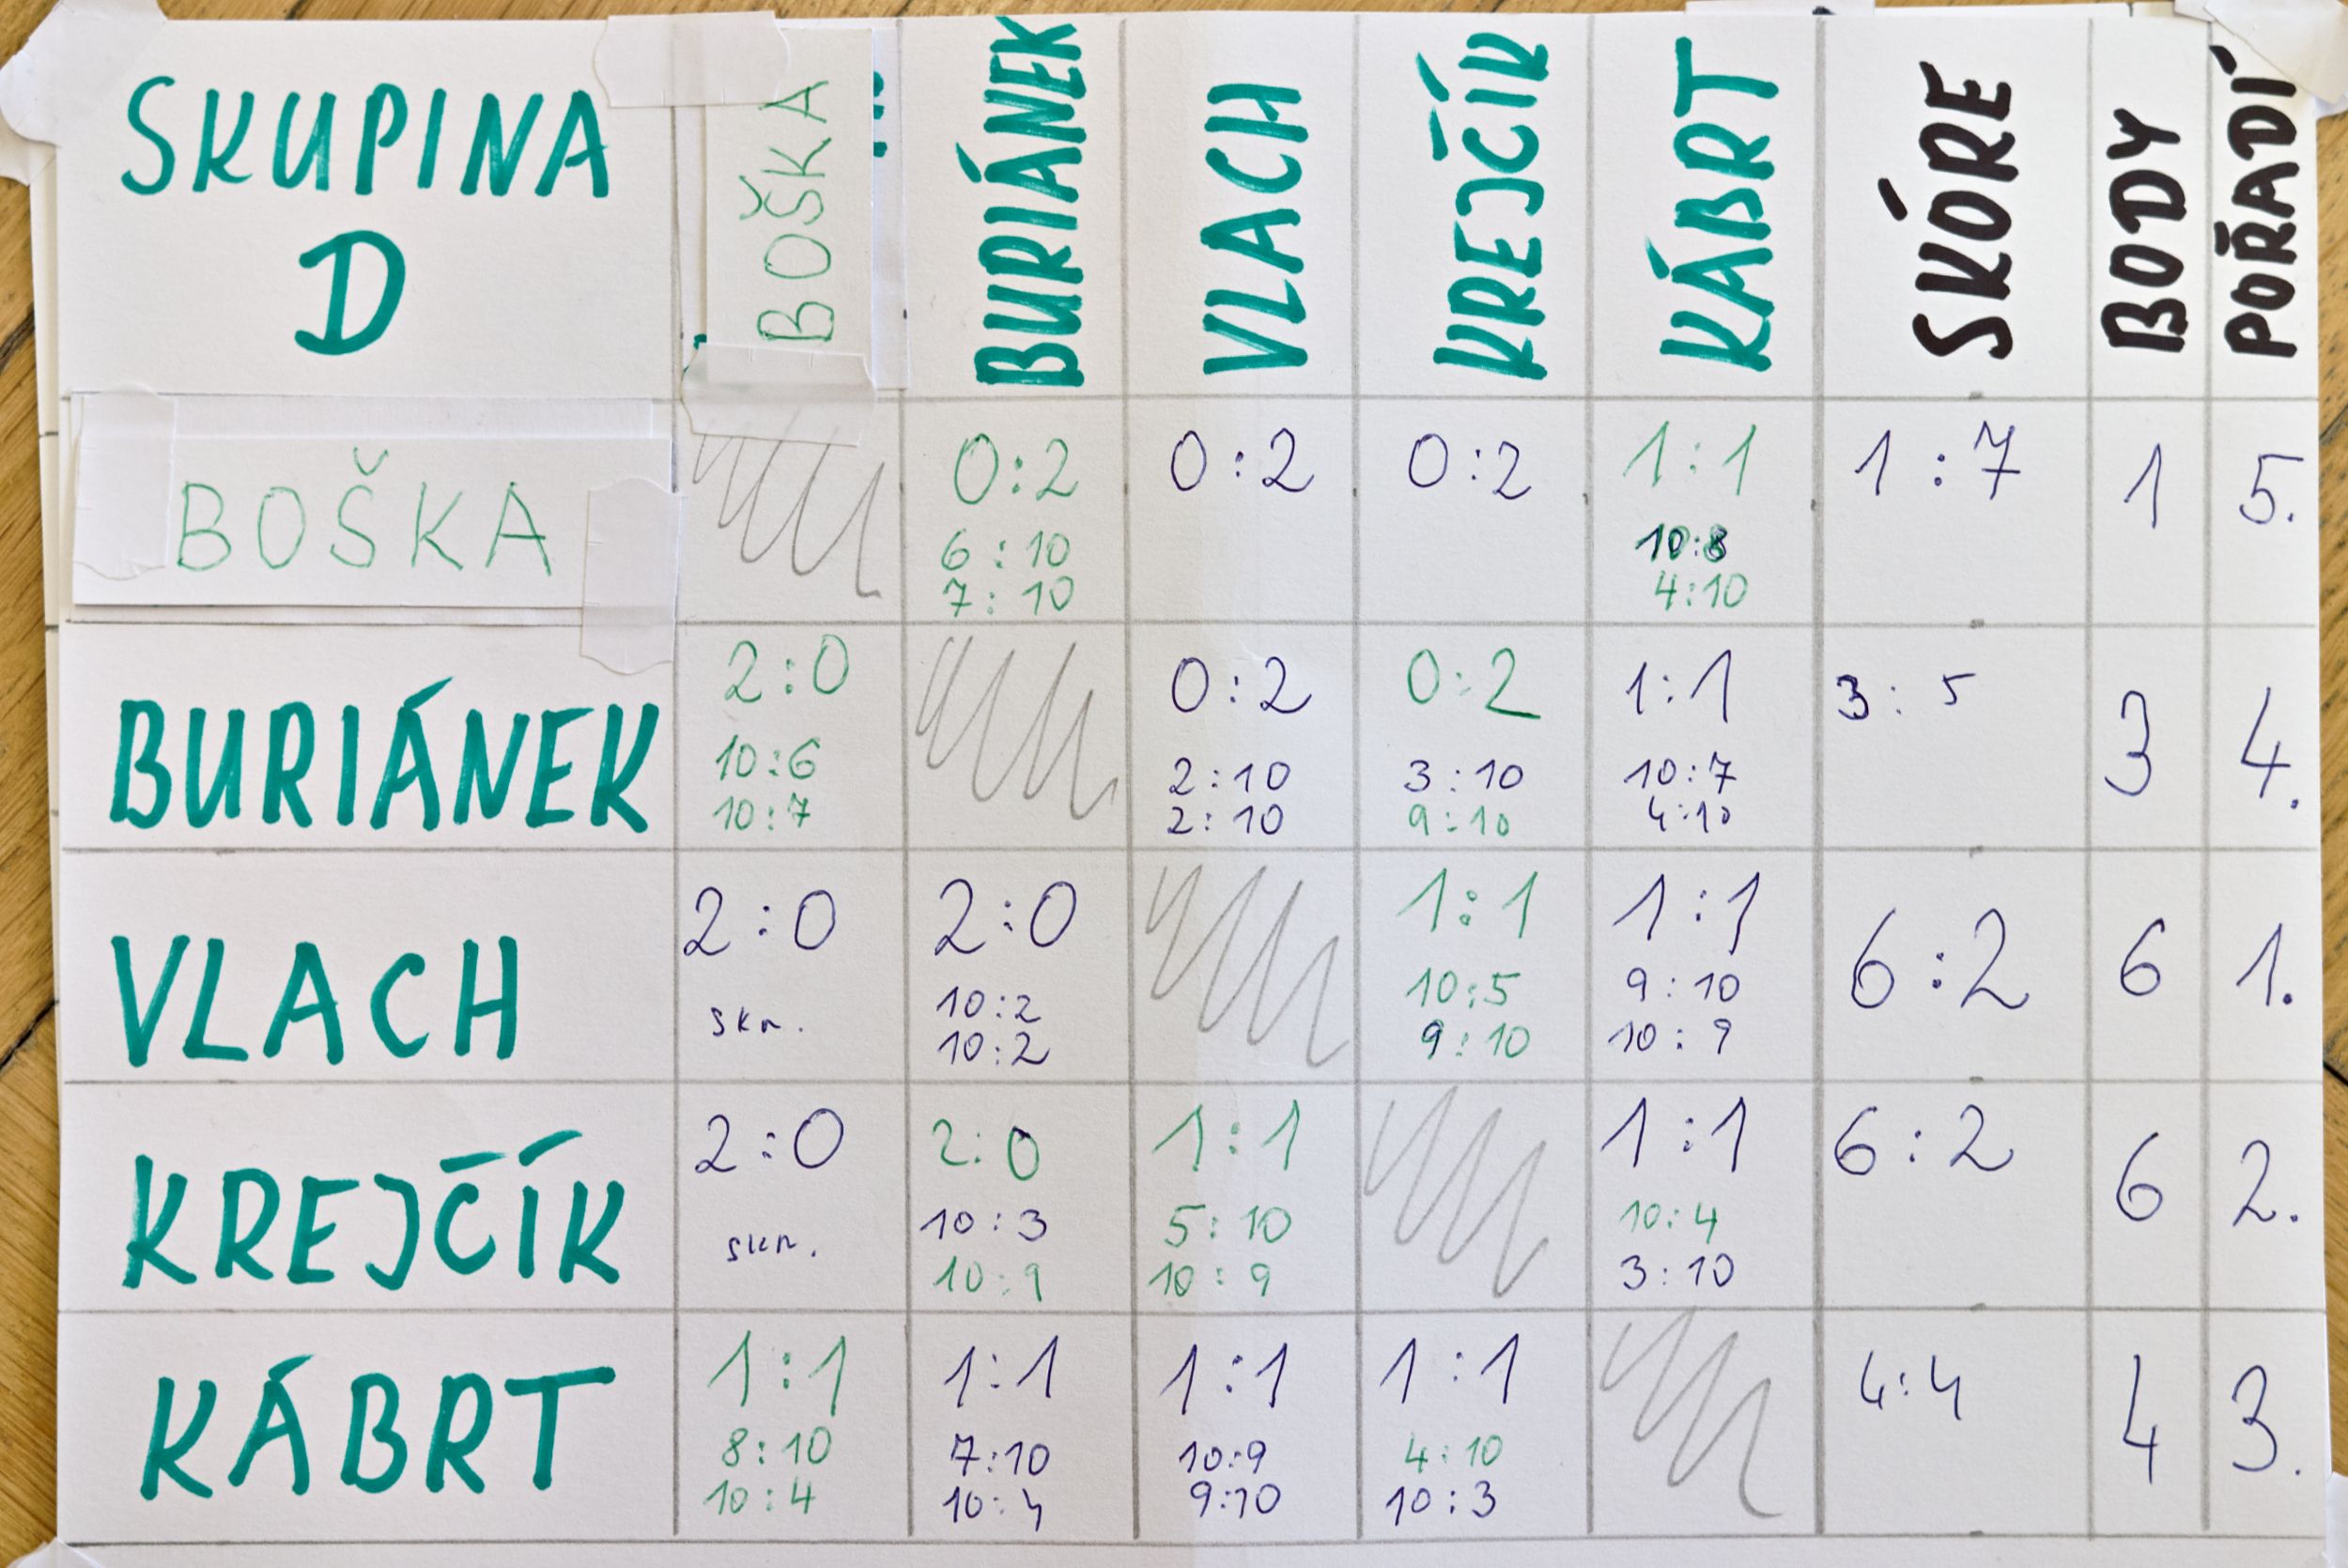 SKUPINA
D
BOŠKA
BURIÁNEK
VLACH
KREJČÍK
KÁBRT
SKÓRE
BODY
POŘADÍ
BOŠKA
0:2
6:10
7:10
0:2
0:2
1:1
10:8
4:10
1:7
1
5.
BURIÁNEK
2:0
10:6
10:7
0:2
2:10
2:10
0:2
3:10
9:10
1:1
10:7
4:10
3:5
3
4.
VLACH
2:0
skr.
2:0
10:2
10:2
1:1
10:5
9:10
1:1
9:10
10:9
6:2
6
1.
KREJČÍK
2:0
skr.
2:0
10:3
10:9
1:1
5:10
10:9
1:1
10:4
3:10
6:2
6
2.
KÁBRT
1:1
8:10
10:4
1:1
7:10
10:4
1:1
10:9
9:10
1:1
4:10
10:3
4:4
4
3.